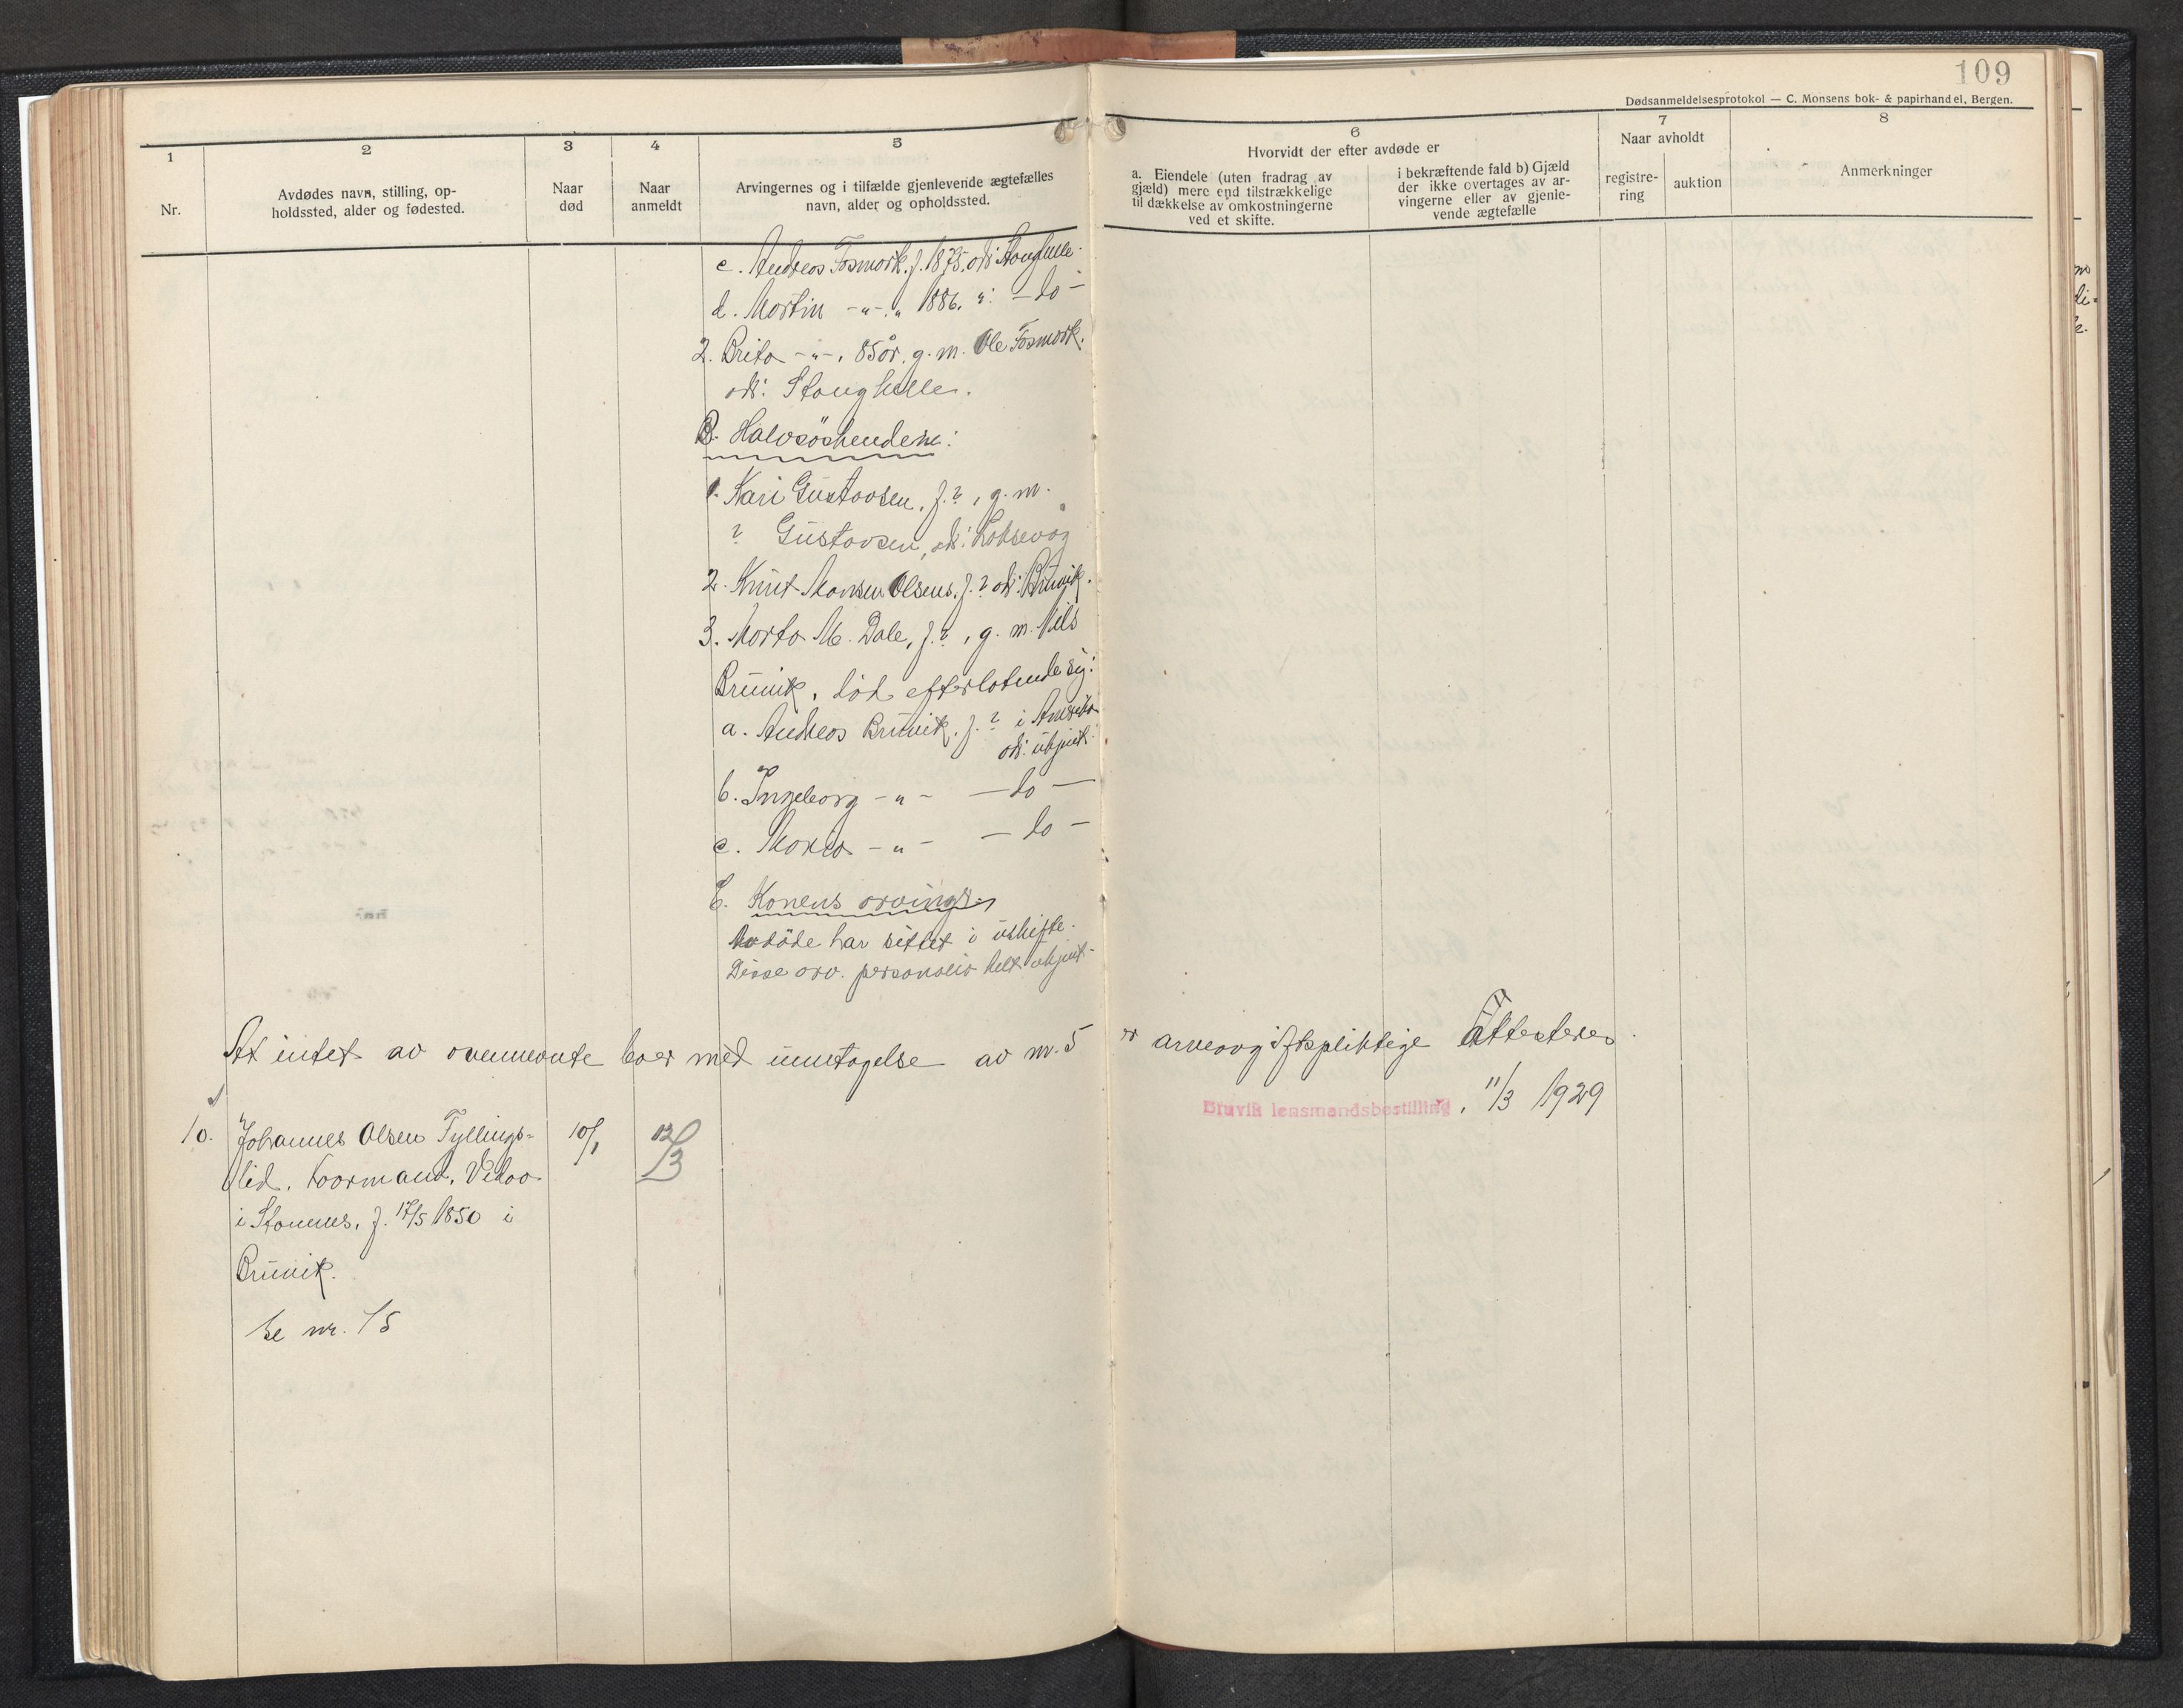 109
Dødsanmeldelsesprotokol — C. Monsens bok- & papirhandel, Bergen.
1
2
3
4
5
6
7
8
Nr.
Avdødes navn, stilling, op-
holdssted, alder og fødested.
Naar
død
Naar
anmeldt
Arvingernes og i tilfælde gjenlevende ægtefælles
navn, alder og opholdssted.
Hvorvidt der efter avdøde er
a. Eiendele (uten fradrag av
gjæld) mere end tilstrækkelige
til dækkelse av omkostningerne
ved et skifte.
i bekræftende fald b) Gjæld
der ikke overtages av ar-
vingerne eller av gjenle-
vende ægtefælle
Naar avholdt
registre-
ring
auktion
Anmerkninger
c. Andreas Fosmark. f. 1875. ods: Stanghelle.
d. Martin -"-. " 1886. ": - do -
2. Brita -"-, 85 år. g. m. Ole Fosmark.
ods: Stanghelle.
B. Halvsøskendene:
1. Kari Gustavsen, f. ?, g. m.
? Gustavsen, ods: Laksevåg
2. Knut Monsen Olsens. f. ? ods: Bruvik.
3. Marta M. Dale, f. ?, g. m. Nils
Bruvik, død efterlatende sig:
a. Andreas Bruvik. f. ? i Amerika
ods: ukjent.
b. Ingeborg -"- - do -
c. Maria -"- - do -
C. Konens arvinger
Avdøde har sittet i uskifte.
Disse arv. personalia helt ukjent-
At intet av ovennevnte boer med unntagelse av nr. 5 er arveavgiftspliktige attesteres.
Bruvik lensmandsbestilling, 11/3 1929
10. Johannes Olsen Tyllings- 10/1 12/3
lid. Kaarmand. Vedao
i Stamnes, f. 17/5 1850 i
Bruvik.
Se nr. 15